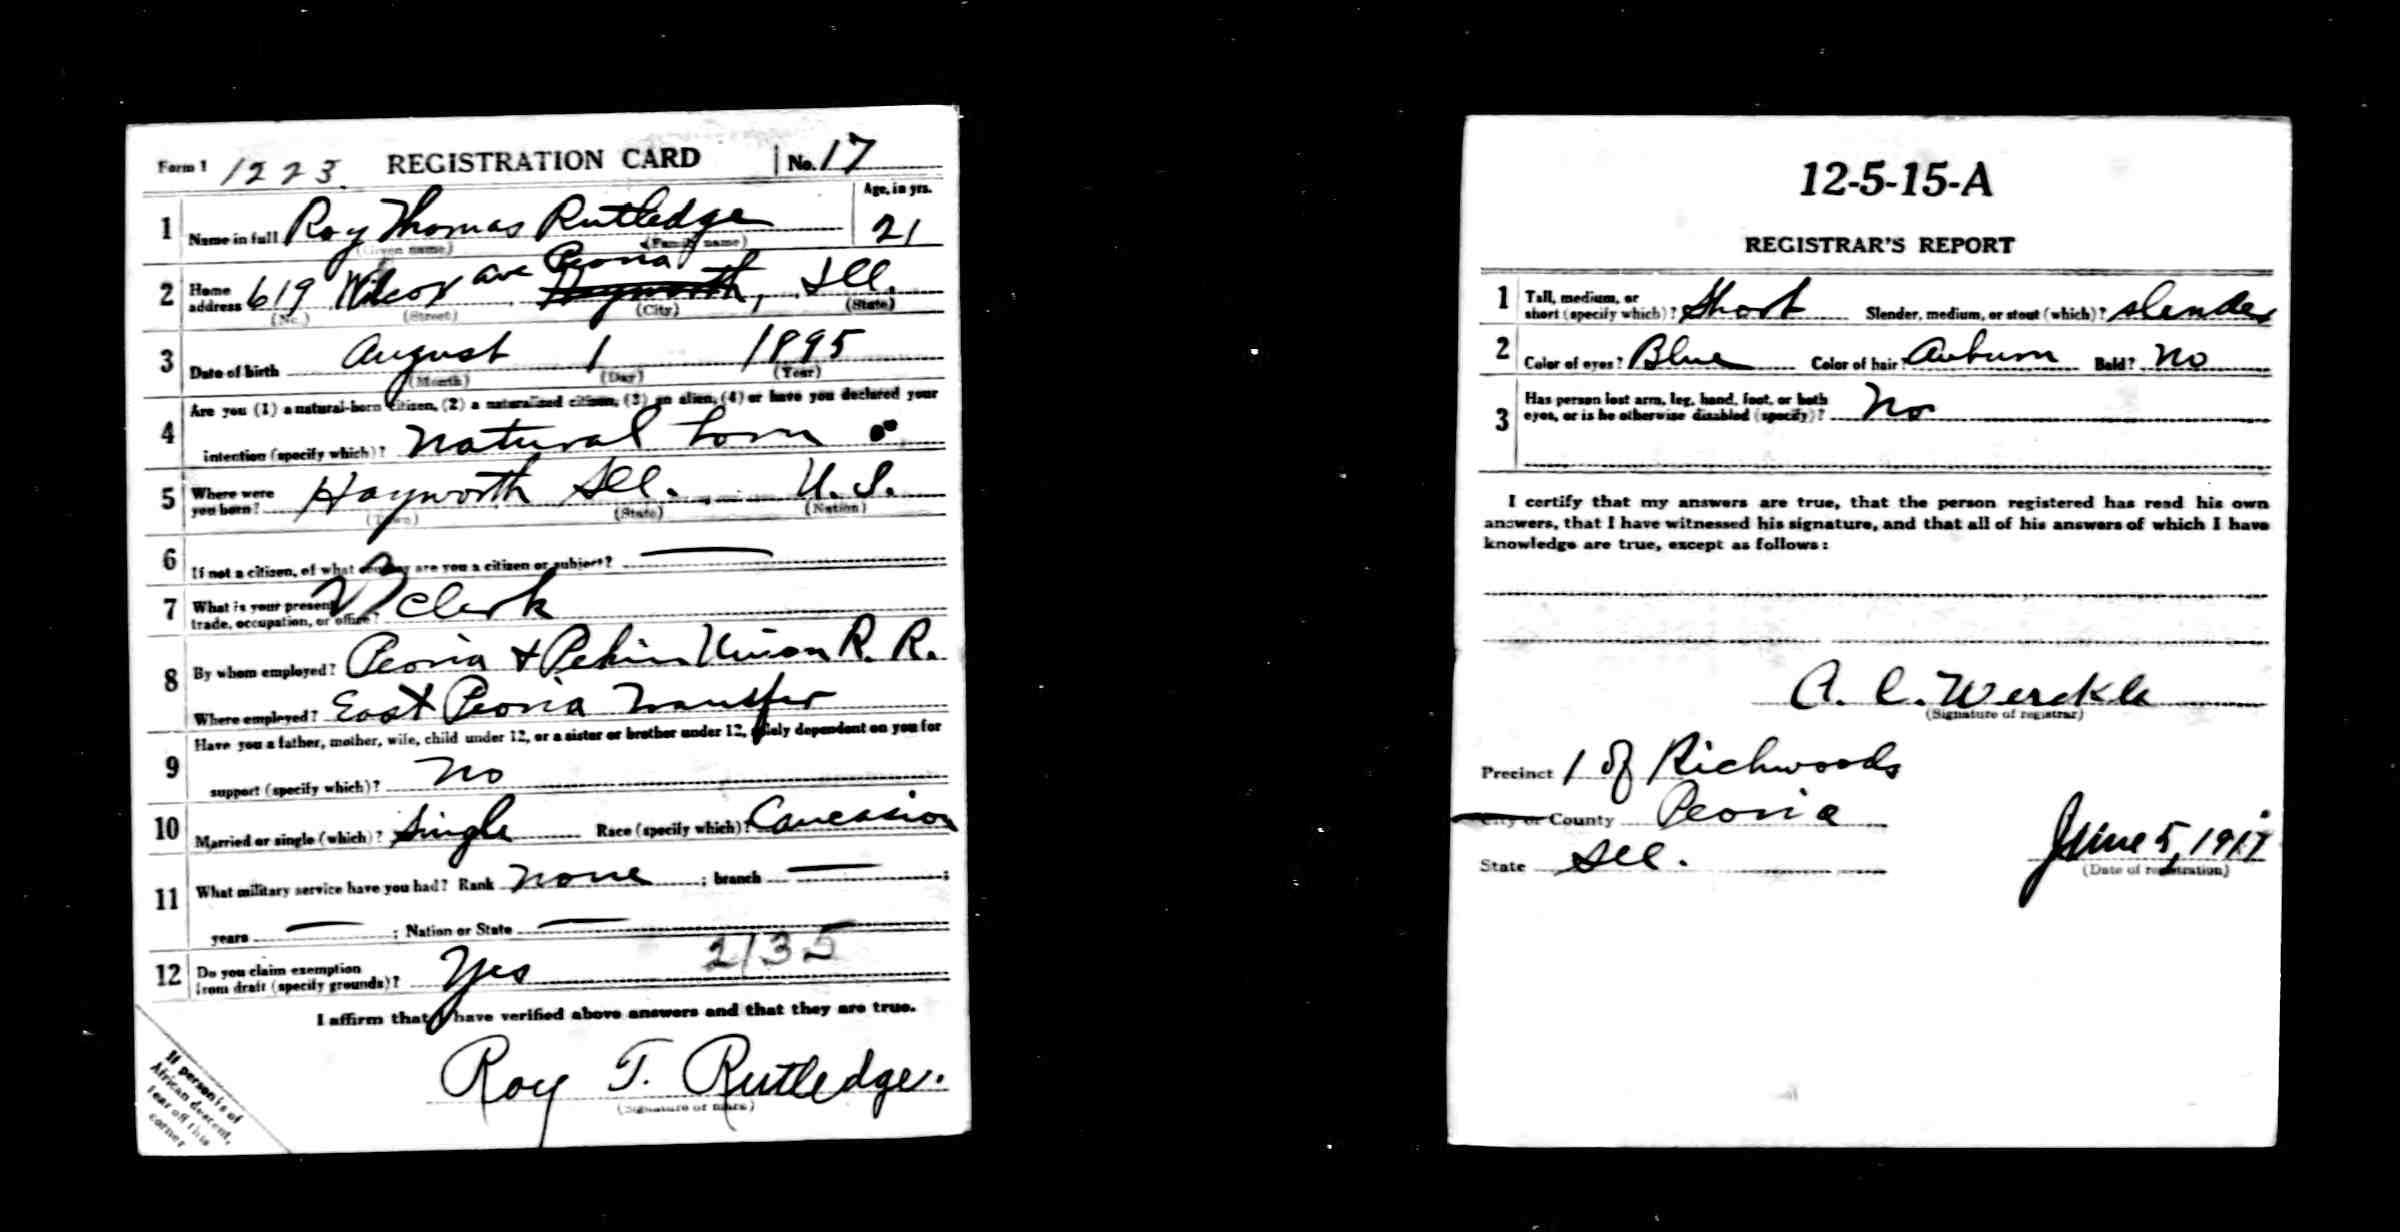 Form 1 1223. REGISTRATION CARD No. 17
1 Name in full Roy Thomas Rutledge Age, in yrs. 21
(Given name) (Family name)
Peoria
2 Home address 619 Wilcox ave Hayworth, Ill.
(No.) (Street) (City) (State)
3 Date of birth August 1 1895
(Month) (Day) (Year)
4 Are you (1) a natural-born citizen, (2) a naturalized citizen, (3) an alien, (4) or have you declared your
intention (specify which)? Natural born
5 Where were you born? Hayworth Ill. U. S.
(Town) (State) (Nation)
6 If not a citizen, of what country are you a citizen or subject?
7 What is your present trade, occupation, or office? Clerk
8 By whom employed? Peoria + Pekin Union R. R.
Where employed? East Peoria Transfer
9 Have you a father, mother, wife, child under 12, or a sister or brother under 12, solely dependent on you for
support (specify which)? No
10 Married or single (which)? Single Race (specify which)? Caucasion
11 What military service have you had? Rank None ; branch ;
years ; Nation or State
12 Do you claim exemption from draft (specify grounds)? Yes 2135
I affirm that I have verified above answers and that they are true.
Roy T. Rutledge.
(Signature or mark)
If person is of
African descent,
tear off this
corner
12-5-15-A
REGISTRAR'S REPORT
1 Tall, medium, or short (specify which)? Short Slender, medium, or stout (which)? Slender
2 Color of eyes? Blue Color of hair? Auburn Bald? No
3 Has person lost arm, leg, hand, foot, or both
eyes, or is he otherwise disabled (specify)? No
I certify that my answers are true, that the person registered has read his own
answers, that I have witnessed his signature, and that all of his answers of which I have
knowledge are true, except as follows:
A. C. Werckle
(Signature of registrar)
Precinct 1 of Richwoods
City or County Peoria
State Ill. June 5, 1917
(Date of registration)